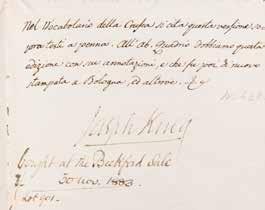 Nel Vocabolario della Crusca si cita questa versione so
pora testi a penna. All' Ab. Quadrio dobbiamo questa
edizione con sue annotazioni, e che fu poi di nuovo
stampata a Bologna, ed altrove.
Joseph
Bought at the Beckford Sale
30 nov. 1883
Lot 901.